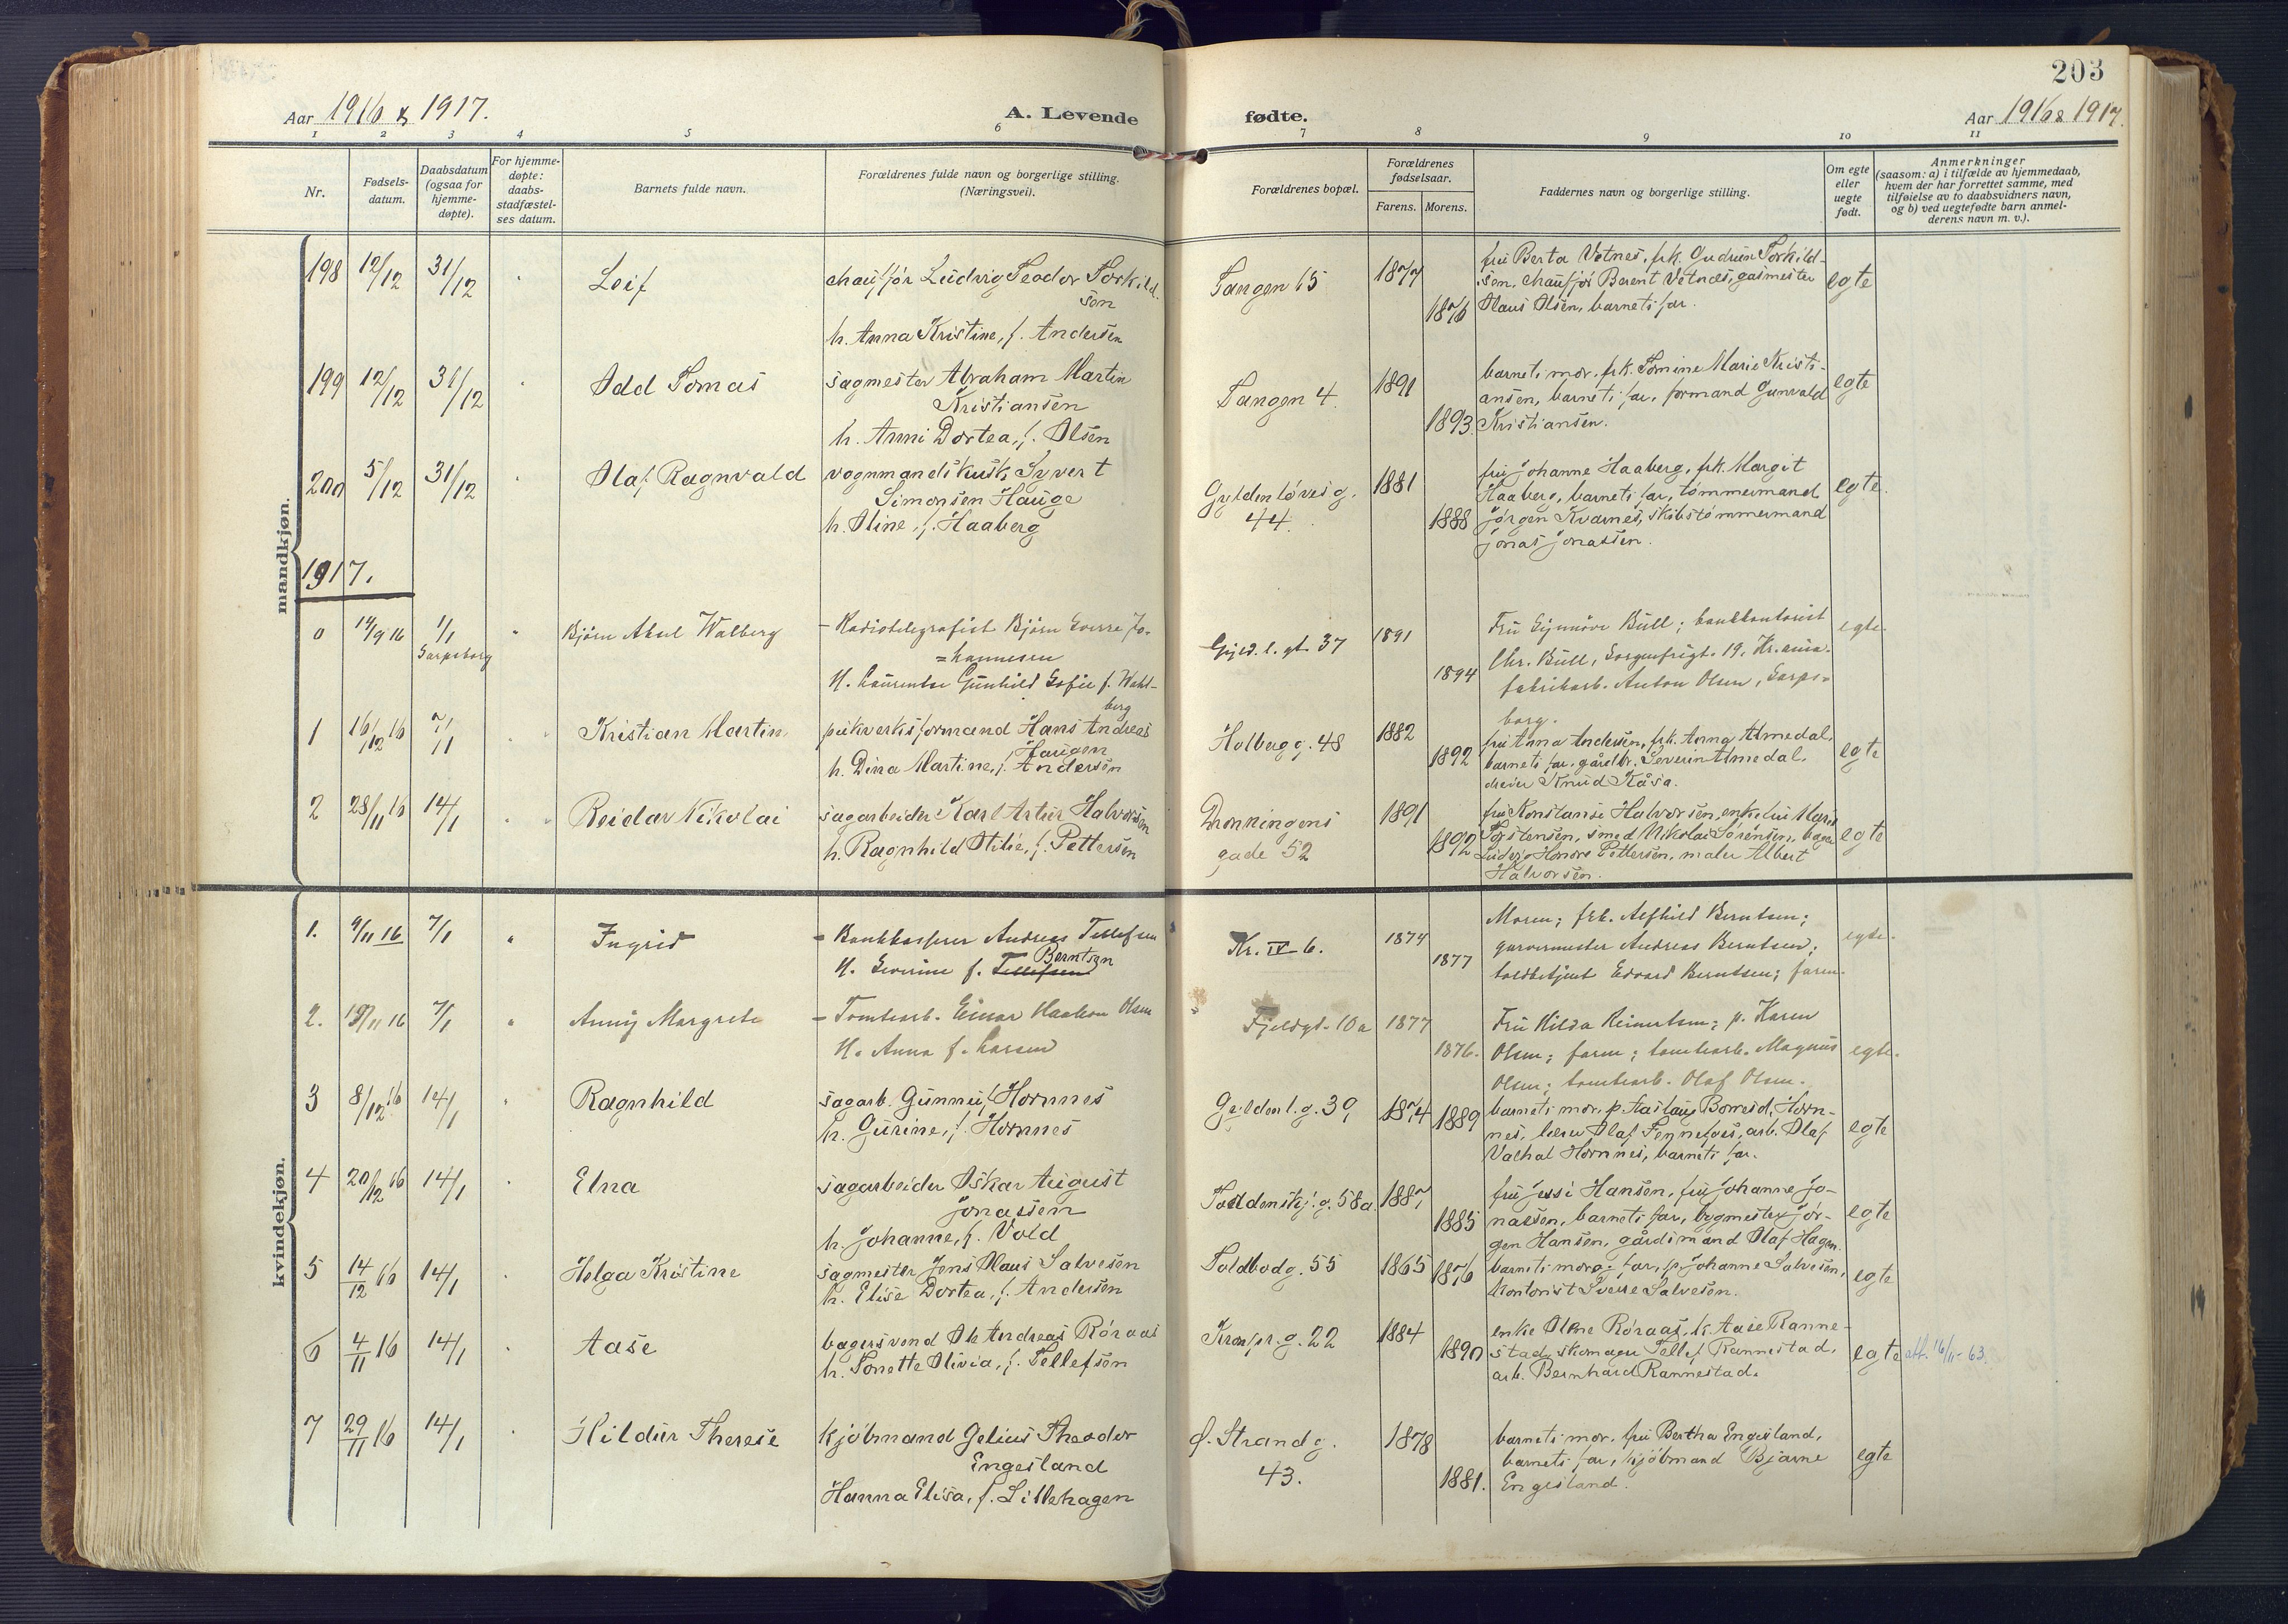 203
Aar 1916 & 1917.
A. Levende
fødte.
Aar 1916 & 1917.
1 2 3 4 5 6 7 8 9 10 11
Nr.
Fødsels-
datum.
Daabsdatum
(ogsaa for
hjemme-
døpte).
For hjemme-
døpte:
daabs-
stadfæstel-
ses datum.
Barnets fulde navn.
Forældrenes fulde navn og borgerlige stilling.
(Næringsvei).
Forældrenes bopæl.
Forældrenes
fødselsaar.
Farens. Morens.
Faddernes navn og borgerlige stilling.
Om egte
eller
uegte
født.
Anmerkninger
(saasom: a) i tilfælde av hjemmedaab,
hvem der har forrettet samme, med
tilføielse av to daabsvidners navn,
og b) ved uegtefødte barn anmel-
derens navn m. v.).
mandkjøn.
198 12/12 31/12 Leif
chauffør Ludvig Teodor Torkild-
sen
h. Anna Kristine, f. Andersen
Tangen 15 1877 1876
fru Berta Vetnes, frk. Gudrun Torkild-
sen, chauffør Berent Vetnes, gasmester
Olaus Olsen, barnets far.
egte
199 12/12 31/12 Odd Tomas
sagmester Abraham Martin
Kristiansen
h. Anni Dortea, f. Olsen
Tangen 4. 1891 1893
barnets mor, frk. Tomine Marie Kristi-
ansen, barnets far, formand Gunvald
Kristiansen.
egte
200 5/12 31/12 Olaf Ragnvald
vognmandskusk Syvert
Simonsen Hauge
h. Oline, f. Haaberg
Gyldenløves g.
44. 1881 1888
fru Johanne Haaberg, frk. Margit
Haaberg, barnets far, tømmermand
Jørgen Kvarnes, skibstømmermand
Jonas Jonassen.
egte.
1917.
0 14/9 16 1/1
Sarpsborg
Bjørn Aksel Walberg
- Radiotelegrafist Bjørn Sverre Jo-
=hannesen
H. Laurentse Gunhild Sofie f. Wahl-
berg
Gyld. l. gt. 37 1891 1894
Fru Synnøve Bull; bankkontorist
Chr. Bull, Sorgenfrigt. 19, Kr.ania.
fabrikarb. Anton Olsen, Sarps-
borg.
egte.
1 16/12 16 7/1 Kristian Martin
h. Dina Martine, f. Andersen
formand Hans Andreas
Haugen
Holbergg. 48 1882 1892
fru Anna Andersen, frk. Anna Almedal,
barnets far, gårdbr. Severin Almedal,
dreier Knud Kåsa.
egte
2 28/11 16 14/1 Reidar Nikolai
sagarbeider Karl Artur Halvorsen
h. Ragnhild Otilie, f. Pettersen
Dronningens
gade 52 1891 1892
fru Konstanse Halvorsen, enkefru Maris
Torstensen, smed Nikolai Sørensen, bager
Ludvig Honore Pettersen, maler Albert
Halvorsen.
egte
kvindekjøn.
1. 9/11 16 7/1 Ingrid
- Bankkasserer Andreas Tellefsen
Berntsen
H. Severine f. Tellefsen
Kr. IV 6. 1874 1877
Moren; frk. Alfhild Berntsen;
garvermester Andreas Berntsen;
toldbetjent Edvard Berntsen; faren.
egte.
2. 19/11 16 7/1 Anny Margrete
- Tomtearb. Einar Haakon Olsen
H. Anna f. Larsen
Fjeldgt. 10a 1877 1876.
Fru Hilda Reinertsen; p. Karen
Olsen; faren; tomtearb. Magnus
Olsen; tomtearb. Olaf Olsen.
egte.
3 8/12 16 14/1 Ragnhild
sagarb. Gunnuf Hornnes
h. Gurine, f. Hornnes
Gyldenl. g. 39, 1874 1889
barnets mor, p. Aaslaug Borreid, Horn-
nes, lærer Olaf Fennefoss, arb. Olaf
Valhal Hornnes, barnets far.
egte
4 20/12 16 14/1 Elna
sagarbeider Oskar August
Jonassen
h. Johanne, f. Vold
Tordenskj. g. 58a 1887 1885
fru Jessi Hansen, fru Johanne Jo-
nassen, barnets far, bygmester Jør-
gen Hansen, gårdsmand Olaf Hagen.
egte
5 14/12 16 14/1 Helga Kristine
sagmester Jens Olaus Salvesen
h. Elise Dortea, f. Andersen
Toldbodg. 55 1865 1876
barnets mor og far, p. Johanne Salvesen,
kontorist Sverre Salvesen.
egte
6 4/11 16 14/1 Aase
bagersvend Ole Andreas Røraas
h. Tonette Olivia, f. Tellefsen
Kronpr. g. 22 1884 1890
enke Oline Røraas, k. Aase Ranne-
stad, skomager Tellef Rannestad,
arb. Bernhard Rannestad.
egte att. 16/11-63.
7 29/11 16 14/1 Hildur Therese
kjøbmand Gelius Theodor
Engesland
Hanna Elisa, f. Lillehagen
Ø. Strandg.
43. 1878 1881.
barnets mor, fru Bertha Engesland,
barnets far, kjøbmand Bjarne
Engesland.
egte